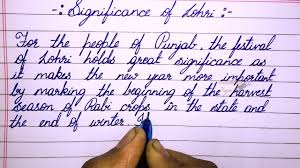 -: Significance of Lohri :-
For the people of Punjab, the festival
of Lohri holds great significance as
it makes the new year more important
by marking the beginning of the harvest
season of Rabi crops in the state and
the end of winter.